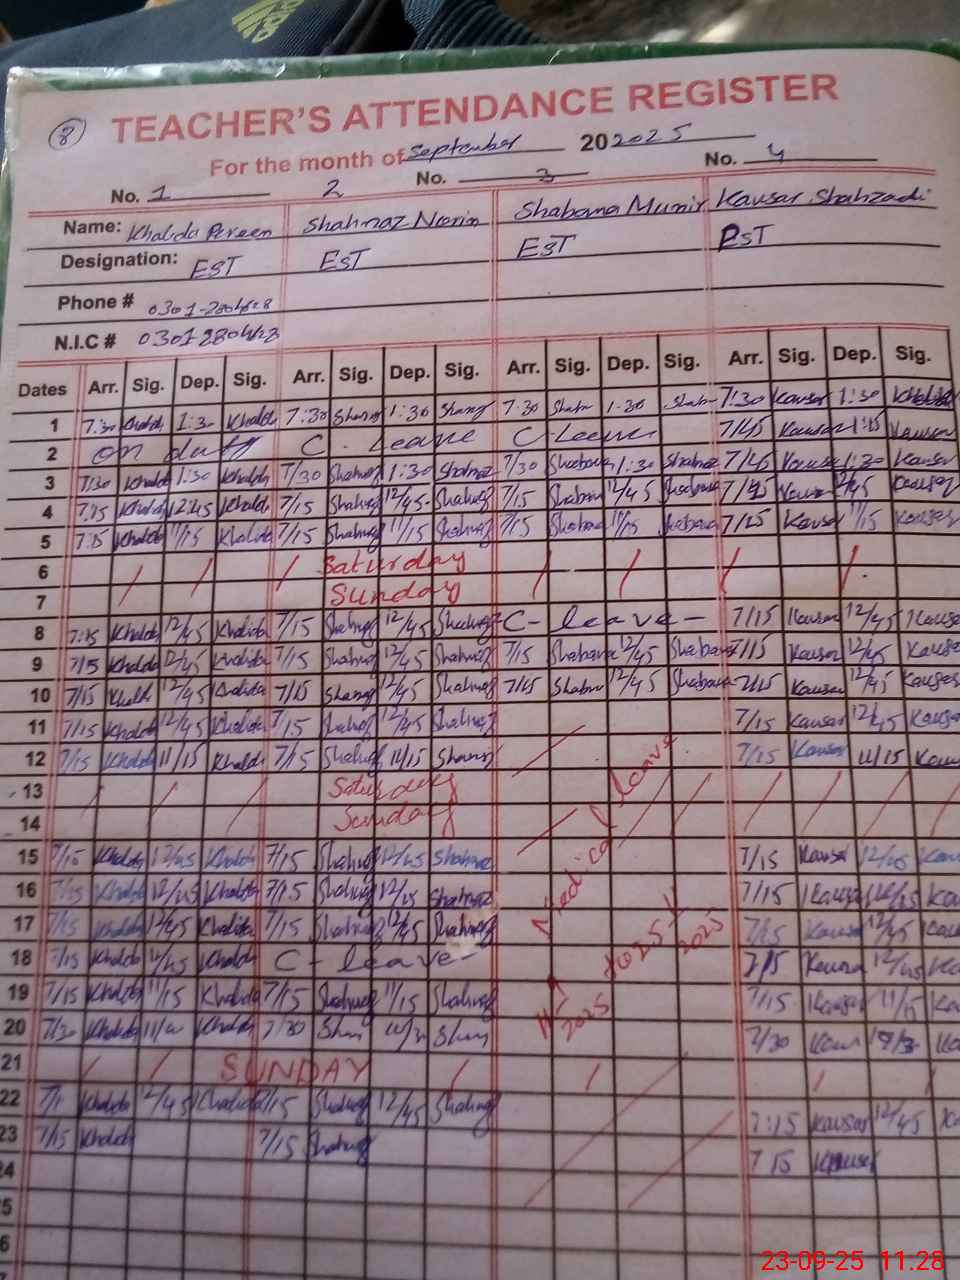 8
TEACHER'S ATTENDANCE REGISTER
For the month of September 20 2025
No. 1 2 No. 3 No. 4
Name: Khalida Perveen Shahnaz Noreen Shabana Munir Kausar Shahzadi
Designation: EST EST EST PST
Phone #
N.I.C #
Dates Arr. Sig. Dep. Sig. Arr. Sig. Dep. Sig. Arr. Sig. Dep. Sig. Arr. Sig. Dep. Sig.
1 7:30 Khalida 1:30 Khalida 7:30 1:30 7:30 1:30 7:30 Kausar 1:30
2 on duty C. Leave C Leave 7/45 Kausar 1:15 Kausar
3 7/30 Khalida 1:30 Khalida 7/30 Shahnaz 1:30 Shahnaz 7/30 Shabana 1:30 7/45 Kausar 1:30 Kausar
4 7:15 Khalida 12:45 Khalida 7/15 Shahnaz 12/45 Shahnaz 7/15 Shabana 12/45 Shabana Kausar 12/45 Kausar
5 7:15 Khalida 11/15 Khalida 7/15 Shahnaz 11/15 Shahnaz 7/15 Shabana 11/15 Shabana Kausar 11/15 Kausar
6 Saturday
7 Sunday
8 7:15 Khalida 12/45 Khalida 7/15 Shahnaz 12/45 Shahnaz C- leave- 7/15 Kausar 12/45 Kausar
9 7/15 Khalida 12/45 Khalida 7/15 Shahnaz 12/45 Shahnaz 7/15 Shabana 12/45 Shabana 7/15 Kausar 12/45 Kausar
10 7/15 12/45 Khalida 7/15 Shahnaz 12/45 Shahnaz 7/15 Shabana 12/45 Shabana 7/15 Kausar 12/45 Kausar
11 7/15 Khalida 12/45 Khalida 7/15 Shahnaz 12/45 Shahnaz 7/15 Kausar 12/45 Kausar
12 7/15 Khalida 11/15 Khalida 7/15 Shahnaz 11/15 Shahnaz 7/15 Kausar 11/15
13 Saturday
14 Sunday
Medical leave
15 7/15 Khalida 12/45 Khalida 7/15 Shahnaz 12/45 Shahnaz 7/15 Kausar 12/45
16 7/15 Khalida 12/45 Khalida 7/15 Shahnaz 12/45 Shahnaz 7/15 Kausar 12/45
17 7/15 Khalida 12/45 Khalida 7/15 Shahnaz 12/45 Shahnaz 7/15 Kausar 12/45
18 7/15 Khalida 12/45 Khalida C- leave- 7/15 Kausar 12/45
19 7/15 Khalida 11/15 Khalida 7/15 Shahnaz 11/15 Shahnaz 7/15 Kausar 11/15
20 7/30 Khalida Khalida 7/30 7/30
21 SUNDAY
22 Khalida 12/45 Khalida 7/15 Shahnaz 12/45 Shahnaz 7:15 Kausar 12/45
23 7/15 Khalida 7/15 Shahnaz 7 15 Kausar
24
5
6
23-09-25 11.28